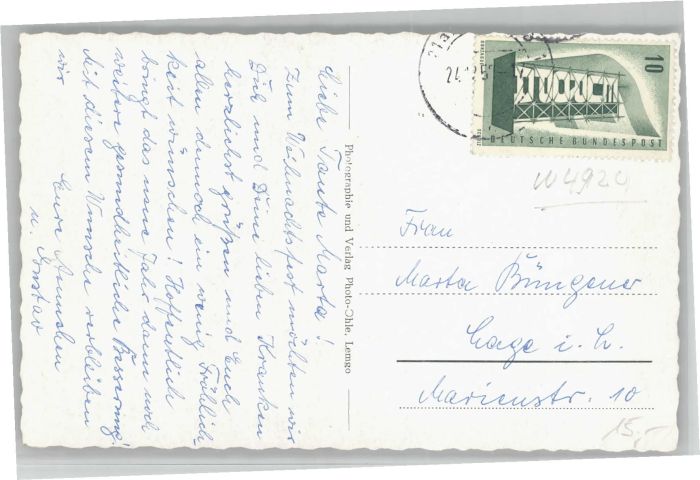 Liebe Tante Marta!
Zum Weihnachtsfest möchten wir
Dich und Deine lieben Kranken
herzlichst grüßen und Euch
allen dennoch ein wenig Fröhlich-
keit wünschen! Hoffentlich
bringt das neue Jahr dann noch
weitere gesundheitliche Besserung!
Mit diesem Wunsche verbleiben
wir
Eure Annchen
u. Gustav
Photographie und Verlag Photo-Ohle, Lemgo
24.
10
DEUTSCHE BUNDESPOST
W4924
Frau
Marta Büngener
Lage i. L.
Marienstr. 10
15,-